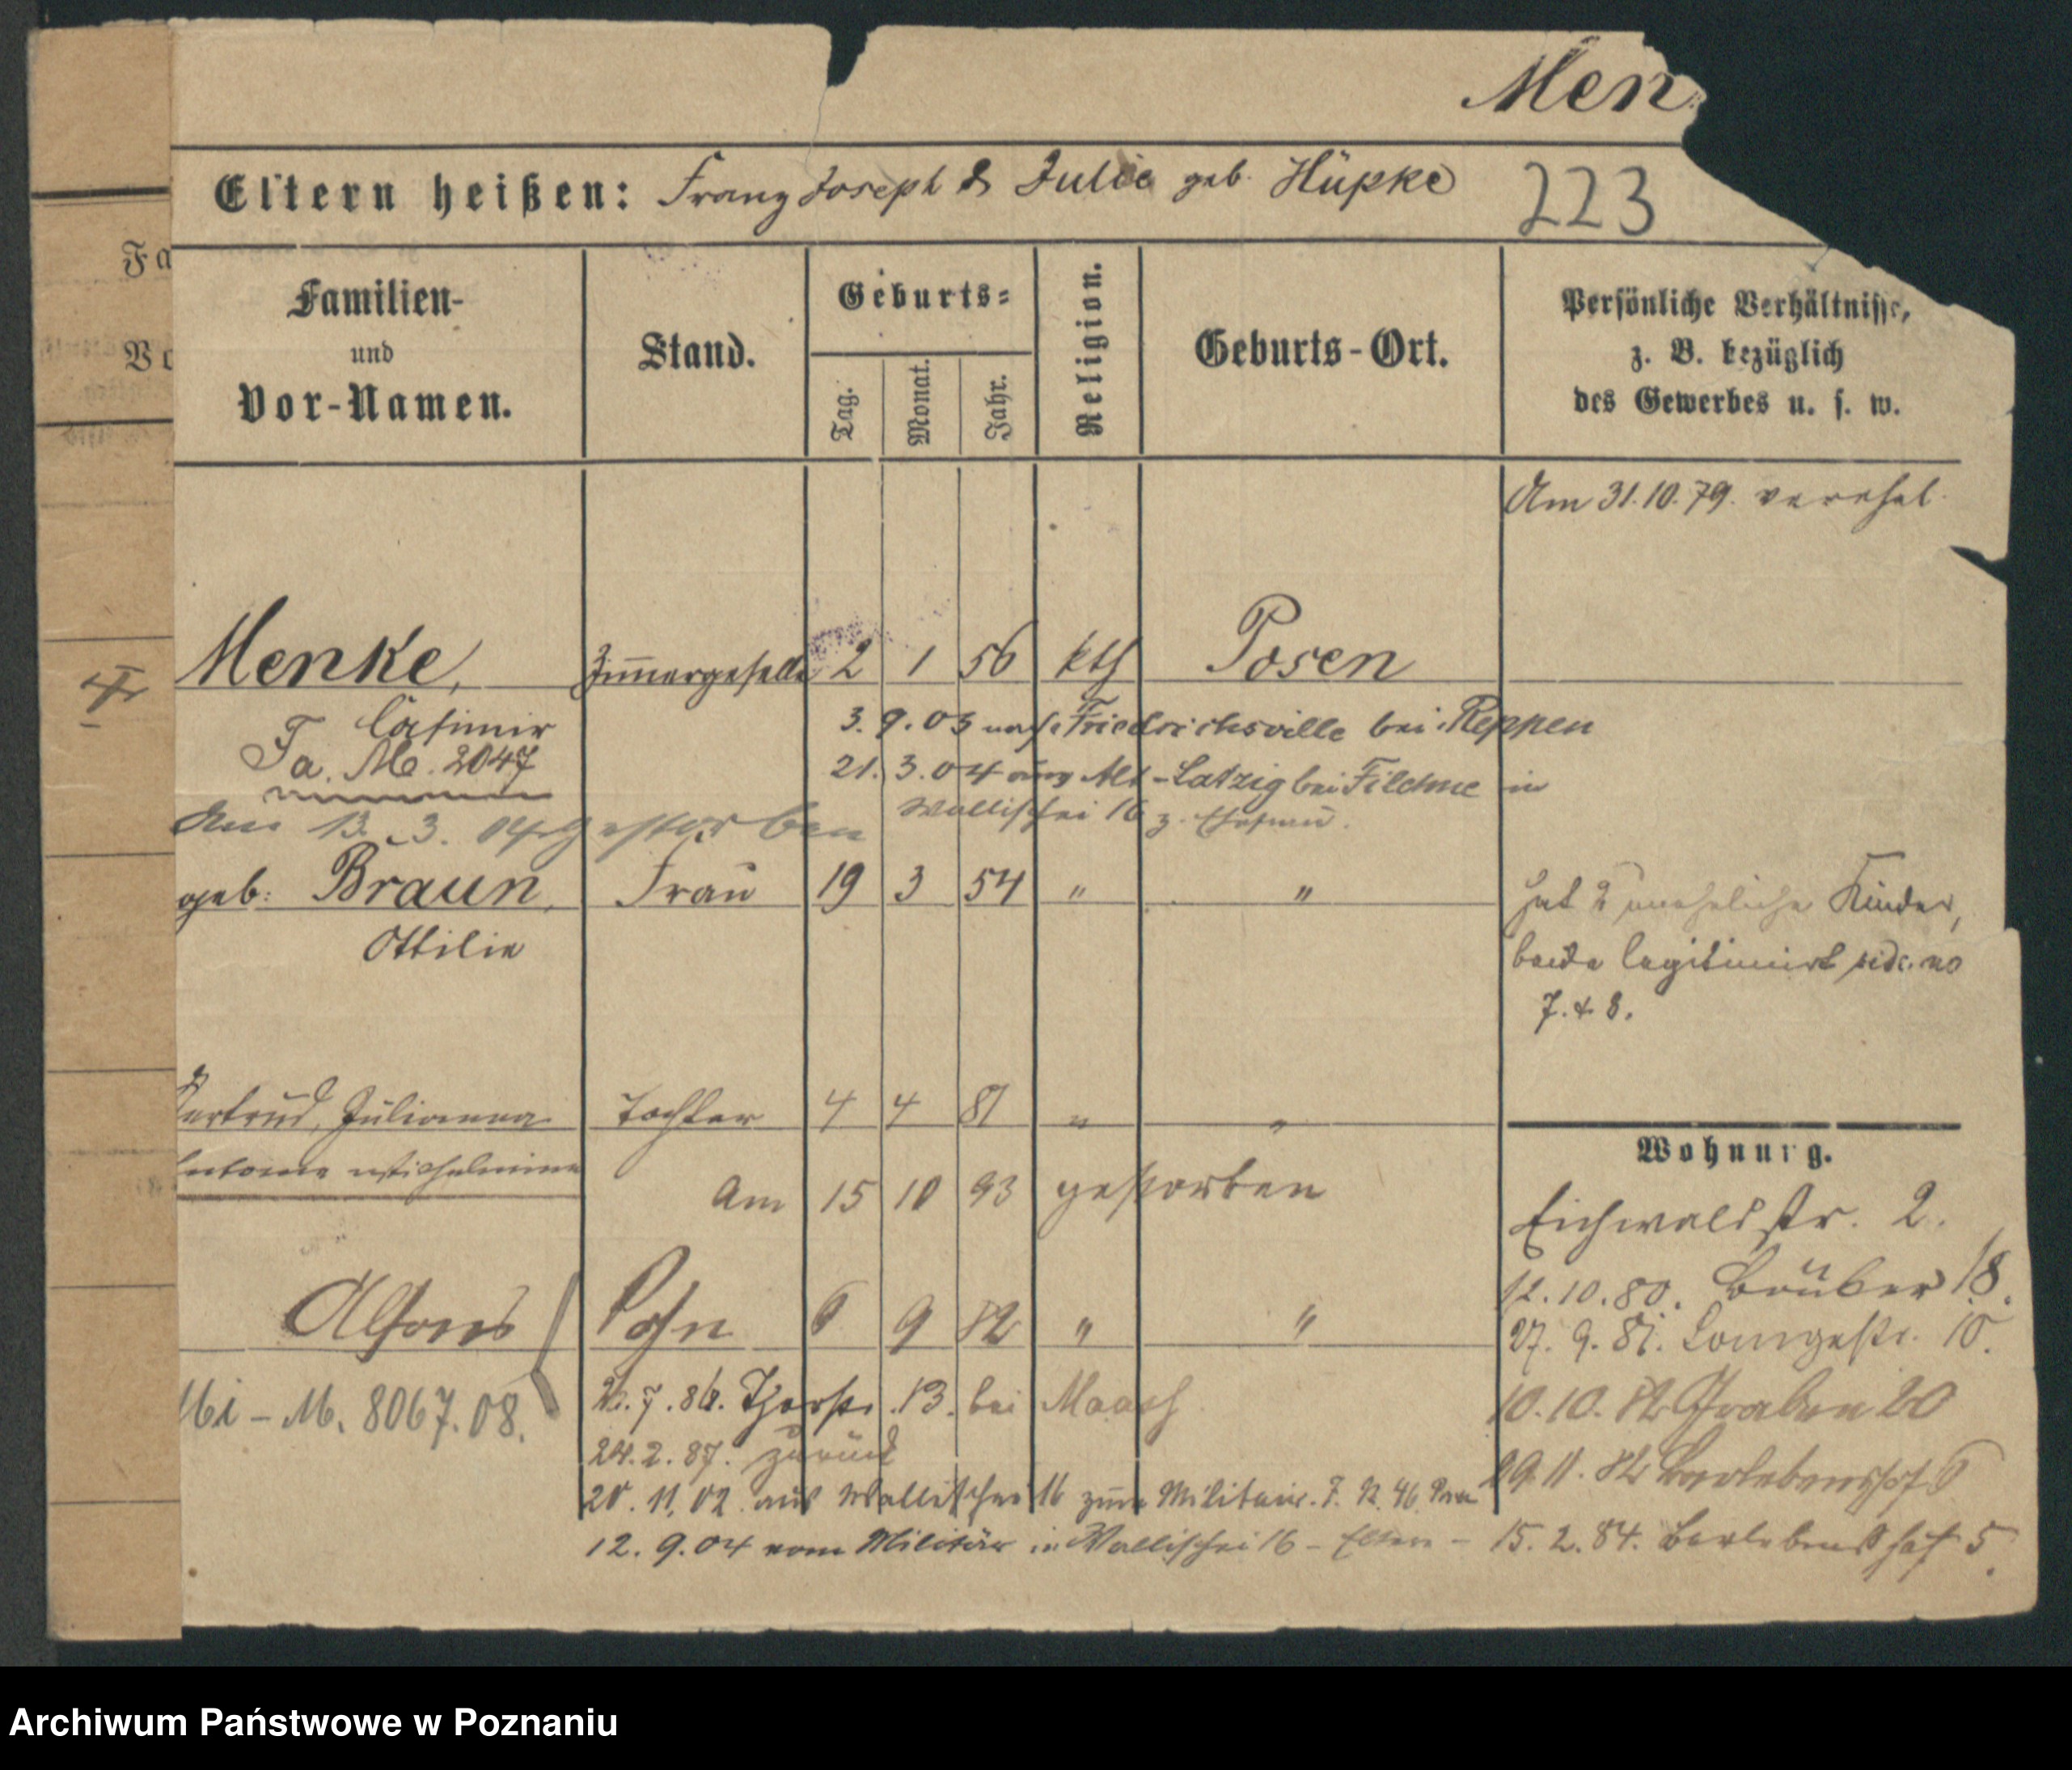 Men
Eltern heißen: Franz Joseph & Julie geb. Hüpke
223
Fa
Vo
Familien-
und
Vor-Namen.
Stand.
Geburts-
Tag.
Monat.
Jahr.
Religion.
Geburts-Ort.
Persönliche Verhältnisse,
z. B. bezüglich
des Gewerbes u. s. w.
Am 31.10.79. verehel.
Menke, Zimmergeselle 2 1 56 kth Posen
Casimir
3. 9. 03 nach Friedrichsville bei Reppen
Fa. M. 2047
21. 3. 04 aus Alt-Latzig bei Filehne in
Wallischei 16 z. Ehefrau.
Am 13. 3. gestorben
geb: Braun, Frau 19 3 54 " "
Ottilie
hat 2 uneheliche Kinder,
beide legitimirt vide. no
7. & 8.
Gertrud, Julianna Tochter 4 4 81 " "
Antonie Wilhelmine
Am 15 10 93 gestorben
Wohnung.
Eichwaldstr. 2.
12.10.80. 18.
27. 9. 81. Langestr. 10.
Alfons Sohn 6 9 82 " "
10.10. 82 Graben 20
Mi - M. 8067.08.
7. 86. Thorstr. 13. bei Maach
24.2.87. zurück
29.11. 82 Berlebenshof 6
20. 11. 02. aus Wallischei 16 zum Militair. 7. 46
12. 9. 04 vom Militär in Wallischei 16 - Eltern -
15. 2. 84. Berlebenshof 5.
Archiwum Państwowe w Poznaniu